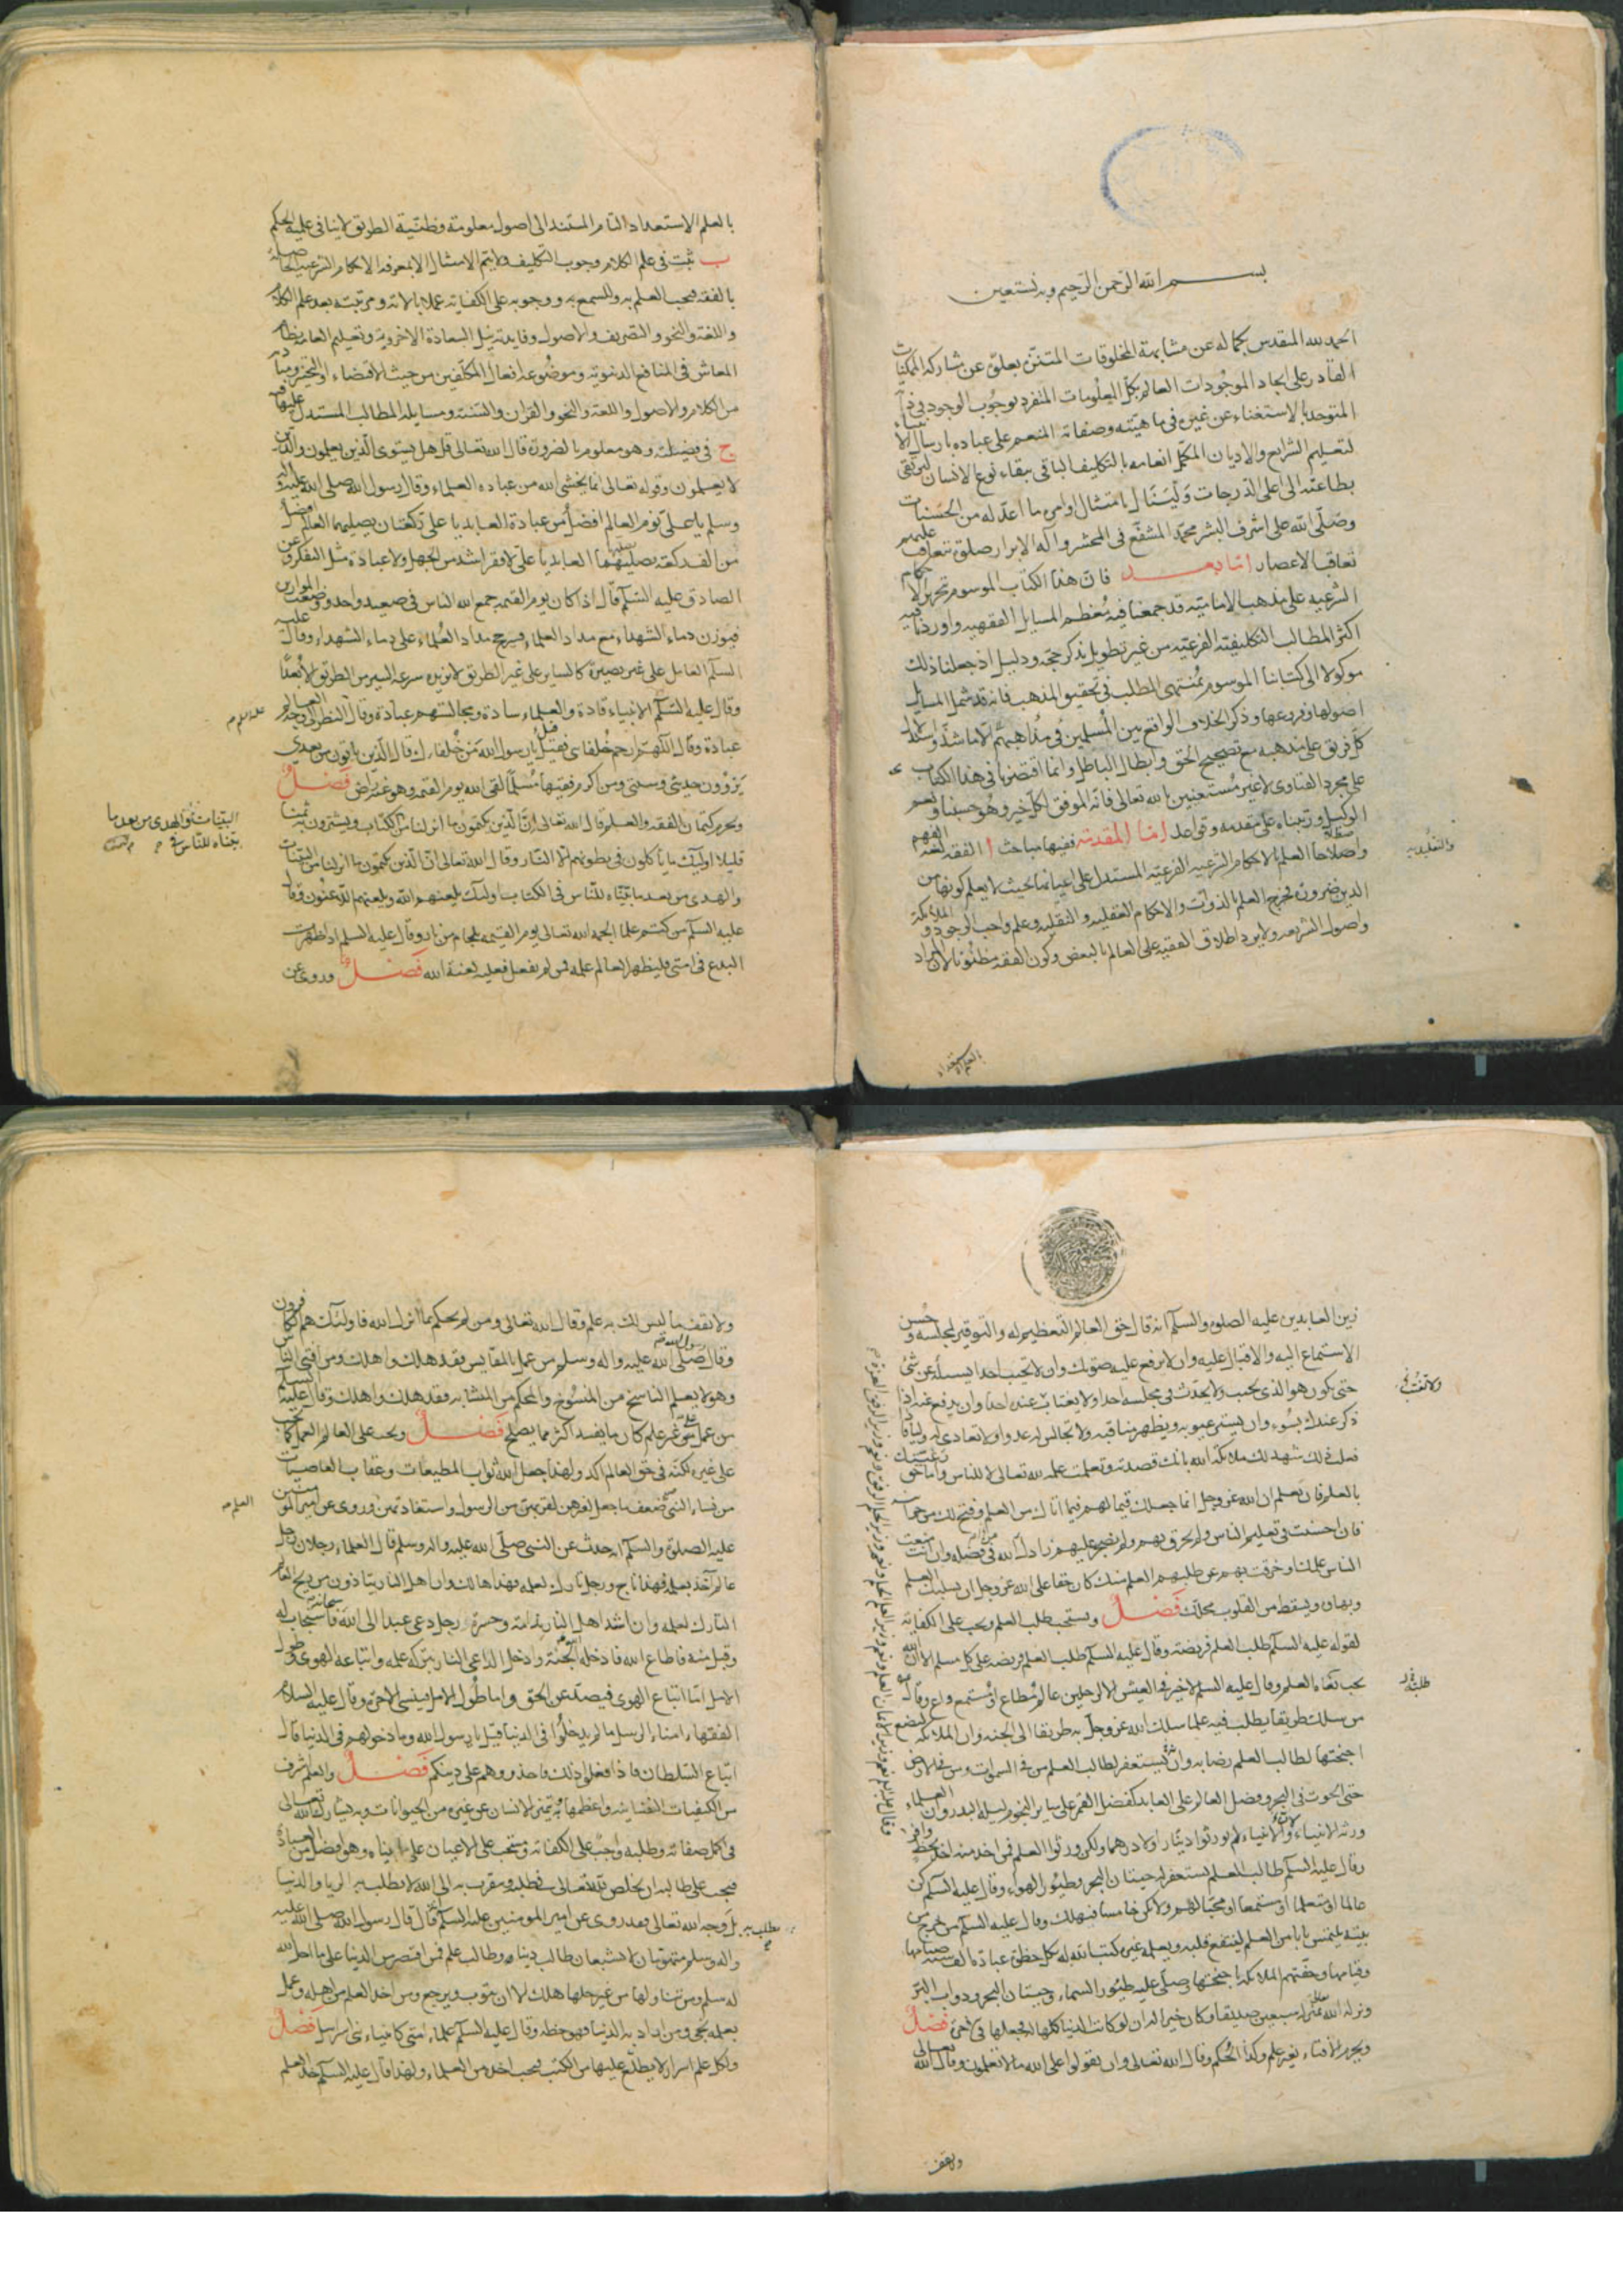 بسم الله الرحمن الرحيم وبه نستعين
الحمد لله المتقدس بكماله عن مشابهة المخلوقات المتنزه بعلوه عن مشاركة الممكنات
القادر على ايجاد الموجودات العالم بكل المعلومات المتفرد بوجوب الوجود في ذاته
المتوحد بالاستغناء عن غيره في ماهيته وصفاته المنعم على عباده بارسال الانبياء
لتعليم الشرايع والاديان المكمل انعامه بالتكليف الباقي ببقاء نوع الانسان ليرتقي
بطاعته الى اعلى الدرجات ولينال بامتثال اوامره ما اعد له من الحسنات
وصلى الله على اشرف البشر محمد المشفع في المحشر وآله الابرار صلوة تتعاقب عليهم
تعاقب الاعصار اما بعد فان هذا الكتاب الموسوم بتحرير الاحكام
الشرعيه على مذهب الاماميه قد جمعنا فيه معظم المسايل الفقهيه واوردنا فيه
اكثر المطالب التكليفية الفرعيه من غير تطويل بذكر حجة ودليل اذ جعلنا ذلك
موكولا الى كتابنا الموسوم بمنتهى المطلب في تحقيق المذهب فانه قد شمل المسايل
اصولها وفروعها وذكر الخلاف الواقع بين المسلمين في مذاهبهم الا ما شذ واستدلال
كل فريق على مذهبه مع تصحيح الحق وابطال الباطل وانما اقتصرنا في هذا الكتاب
على مجرد الفتاوى لا غير مستعينين بالله تعالى فانه الموفق لكل خير وهو حسبنا ونعم
الوكيل ورتبناه على مقدمه وقواعد اما المقدمة ففيها مباحث ا الفقه لغة الفهم
واصطلاحا العلم بالاحكام الشرعيه الفرعيه المستدل على اعيانها بحيث لا يعلم كونها من
الدين ضرورة فخرج العلم بالذوات والاحكام العقليه والنقليه وعلم واجب الوجود والملائكة
واصول الشريعه ولا يرد اطلاق الفقيه على العالم بالبعض وكون الفقه مظنونا لان المراد
بالعلم الاستعداد
بالعلم الاستعداد التام المستند الى اصول معلومة وظنية الطريق لا ينافي علمية الحكم
ب ثبت في علم الكلام وجوب التكليف ولا يتم الامتثال الا بمعرفة الاحكام الشرعية الحاصلة
بالفقه فيجب العلم به وللسمع به ووجوبه على الكفاية عملا بالاية ومرتبته بعد علم الكلام
واللغة والنحو والتصريف والاصول وفايدته نيل السعادة الاخروية وتعليم العامة نظام
المعاش في المنافع الدنيوية وموضوعه افعال المكلفين من حيث الاقتضاء او التخيير ومباديه
من الكلام والاصول واللغة والنحو والقران والسنة ومسايله المطالب المستدل عليها فيه
ج في فضيلته وهو معلوم بالضرورة قال الله تعالى قل هل يستوي الذين يعلمون والذين
لا يعلمون وقوله تعالى انما يخشى الله من عباده العلماء وقال رسول الله صلى الله عليه واله
وسلم يا علي نوم العالم افضل من عبادة العابد يا علي ركعتان يصليهما العالم افضل
من الف ركعة يصليها العابد يا علي لا فقر اشد من الجهل ولا عبادة مثل التفكر وعن
الصادق عليه السلم قال اذا كان يوم القيمه جمع الله الناس في صعيد واحد ووضعت الموازين
فيوزن دماء الشهداء مع مداد العلماء فيرجح مداد العلماء على دماء الشهداء وقال عليه
السلم العامل على غير بصيرة كالساير على غير الطريق لا يزيده سرعة السير من الطريق الا بعدا
وقال عليه السلم الانبياء قادة والعلماء سادة ومجالستهم عبادة وقال النظر الى وجه العالم
عبادة وقال اللهم ارحم خلفاي فقيل يا رسول الله من خلفاءك قال الذين ياتون من بعدي
يروون حديثي وسنتي ومن اكرم فقيها مسلما لقي الله يوم القيمه وهو عنه راض فصل
ويحرم كتمان الفقه والعلم قال الله تعالى ان الذين يكتمون ما انزلنا من الكتاب ويشترون به ثمنا
قليلا اولئك ما ياكلون في بطونهم الا النار وقال الله تعالى ان الذين يكتمون ما انزلنا من البينات
والهدى من بعد ما بيناه للناس في الكتاب اولئك يلعنهم الله ويلعنهم اللاعنون وقال
عليه السلم من كتم علما الجمه الله تعالى يوم القيمه بلجام من نار وقال عليه السلم اذا ظهرت
البدع في امتي فليظهر العالم علمه فمن لم يفعل فعليه لعنة الله فصل وروي عن
البينات والهدى من بعد ما
بيناه للناس في
زين العابدين عليه الصلوة والسلم انه قال حق العالم التعظيم له والتوقير لمجلسه وحسن
الاستماع اليه والاقبال عليه وان لا ترفع عليه صوتك وان لا تجيب احدا يسأله عن شئ
حتى يكون هو الذي يجيب ولا تحدث في مجلسه احدا ولا يغتاب عنده احدا وان يدفع عنه اذا
ذكر عندك بسوء وان تستر عيوبه ويظهر مناقبه ولا تجالس له عدوا ولا تعادي له وليا فاذا
فعلت ذلك شهد لك ملائكة الله بانك قصدته وتعلمت علمه لله تعالى لا للناس واما حق رعيتك
بالعلم فان تعلم ان الله عز وجل انما جعلك قيما لهم فيما اتاك من العلم وفتح لك من خزاينه
فان احسنت في تعليم الناس ولم تخرق بهم ولم تضجر عليهم زادك الله من فضله وان انت منعت
الناس علمك او خرقت بهم عن طلبهم العلم منك كان حقا على الله عز وجل ان يسلبك العلم
وبهاه ويسقط من القلوب محلك فصل ويستحب طلب العلم ويجب على الكفاية
لقوله عليه السلم طلب العلم فريضة وقال عليه السلم طلب العلم فريضة على كل مسلم الا ان الله
يحب بغاة العلم وقال عليه السلم لا خير في العيش الا لرجلين عالم مطاع او مستمع واع وقال
من سلك طريقا يطلب فيه علما سلك الله عز وجل به طريقا الى الجنه وان الملائكة لتضع
اجنحتها لطالب العلم رضا به وانه يستغفر لطالب العلم من في السموات ومن في الارض
حتى الحوت في البحر وفضل العالم على العابد كفضل القمر على ساير النجوم ليلة البدر وان العلماء
ورثة الانبياء لان الانبياء لم يورثوا دينارا ولا درهما ولكن ورثوا العلم فمن اخذ منه اخذ بحظ وافر
وقال عليه السلم طالب العلم يستغفر له حيتان البحر وطيور الهواء وقال عليه السلم كن
عالما او متعلما او مستمعا او محبا لهم ولا تكن خامسا فتهلك وقال عليه السلم من خرج من
بيته يلتمس بابا من العلم لينتفع قلبه ويعلمه غيره كتب الله له بكل خطوة عبادة الف سنه صيامها
وقيامها وحفته الملائكة باجنحتها وصلى عليه طيور السماء وحيتان البحر ودواب البر
ونزله الله تعالى منزلة سبعين صديقا وكان خيرا له ان لو كانت الدنيا كلها له فجعلها في الاخرة فصل
ويحرم الافتاء بغير علم وكذا الحكم وقال الله تعالى وان تقولوا على الله ما لا تعلمون وقال الله تعالى
ولا تقف
ولا تقف ما ليس لك به علم وقال الله تعالى ومن لم يحكم بما انزل الله فاولئك هم الكافرون
وقال رسول الله صلى الله عليه واله وسلم من عمل بالمقاييس فقد هلك واهلك ومن افتى الناس
وهو لا يعلم الناسخ من المنسوخ والمحكم من المتشابه فقد هلك واهلك وقال عليه السلم
من عمل على غير علم كان ما يفسد اكثر مما يصلح فصل ويجب على العالم العمل كما يجب
على غيره لكنه في حق العالم اكد ولهذا جعل الله ثواب المطيعات وعقاب العاصيات
من نساء النبي ضعف ما جعل لغيرهن لقربهن من الرسول واستفادتهن وروي عن امير المؤمنين
عليه الصلوة والسلم انه حدث عن النبي صلى الله عليه واله وسلم قال العلماء رجلان رجل
عالم آخذ بعلمه فهذا ناج ورجل تارك لعلمه فهذا هالك وان اهل النار يتاذون من ريح العالم
التارك لعلمه وان اشد اهل النار ندامة وحسرة رجل دعى عبدا الى الله سبحانه فاستجاب له
وقبل منه فاطاع الله فادخله الجنة وادخل الداعي النار بتركه علمه واتباعه الهوى وطول
الامل اما اتباع الهوى فيصد عن الحق واما طول الامل ينسي الاخرة وقال عليه السلام
الفقهاء امناء الرسل ما لم يدخلوا في الدنيا قيل يا رسول الله وما دخولهم في الدنيا قال
اتباع السلطان فاذا فعلوا ذلك فاحذروهم على دينكم فصل والعلم اشرف
من الكيفيات النفسانيه واعظمها وبه يتميز الانسان عن غيره من الحيوانات وبه يشارك الله تعالى
في اكمل صفاته وطلبه واجب على الكفاية ومستحب على الاعيان على ما بيناه وهو افضل من العبادة
فيجب على طالبه ان يخلص لله تعالى في طلبه ويتقرب به الى الله لا يطلب به الريا والدنيا
بل وجه الله تعالى فقد روي عن امير المومنين عليه السلم قال قال رسول الله صلى الله عليه
واله وسلم منهومان لا يشبعان طالب دنيا وطالب علم فمن اقتصر من الدنيا على ما احل الله
له سلم ومن تناولها من غير حلها هلك الا ان يتوب ويرجع ومن اخذ العلم من اهله وعمل
بعلمه نجى ومن اراد به الدنيا فهو حظه وقال عليه السلم علماء امتي كانبياء بني اسرايل فصل
ولكل علم اسرار لا يطلع عليها من الكتب فيجب اخذه من العلماء ولهذا قال عليه السلم خذ العلم